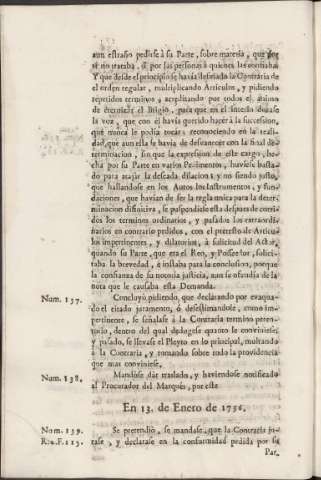 aun estraño pedirse à su Parte, sobre materia, que por
sì no trataba, sì por las personas à quienes las confiaba.
Y que desde el principio se havia desviado la Contraria de
el orden regular, multiplicando Articulos, y pidiendo
repetidos terminos, acreditando por todos el animo
de eternizar el litigio, para que en el interin durase
la voz, que con el havia querido hacer à la succession,
que nunca le podia tocar; reconociendo en la reali-
dad, que aun ella se havia de desvanecer con la final de-
terminacion, sin que la expression de este cargo, he-
cha por su Parte en varios Pedimentos, huviese basta-
do para atajar la deseada dilacion; y no siendo justo,
que hallandose en los Autos los Instrumentos, y fun-
daciones, que havian de ser la regla unica para la deter-
minacion difinitiva, se suspendiese esta despues de corri-
dos los terminos ordinarios, y pasados los extraordi-
narios en contrario pedidos, con el pretexto de Articu-
los impertinentes, y dilatorios, à solicitud del Actor,
quando su Parte, que era el Reo, y Poseedor, solici-
taba la brevedad, è instaba para la conclusion, porque
la confianza de su notoria justicia, aun se ofendia de la
nota que le causaba esta Demanda.
Num. 137. Concluyò pidiendo, que declarando por evaqua-
do el citado juramento, ò desestimandose, como im-
pertinente, se señalase à la Contraria termino peren-
torio, dentro del qual dedugese quanto le conviniese;
y pasado, se llevase el Pleyto en lo principal, multando
à la Contraria, y tomando sobre todo la providencia
que mas conviniese.
Num. 138. Mandose dàr traslado, y haviendose notificado
al Procurador del Marquès, por este
En 13. de Enero de 1756.
Num. 139. Se pretendiò, se mandase, que la Contraria ju-
R.2.F.113. rase, y declarase en la conformidad pedida por su
Par-